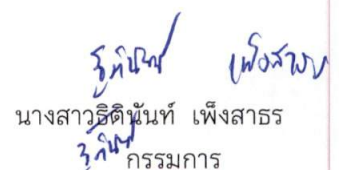 ฐิตินันท์ เพ็งสาธร
นางสาวฐิตินันท์ เพ็งสาธร
ฐิตินันท์
กรรมการ